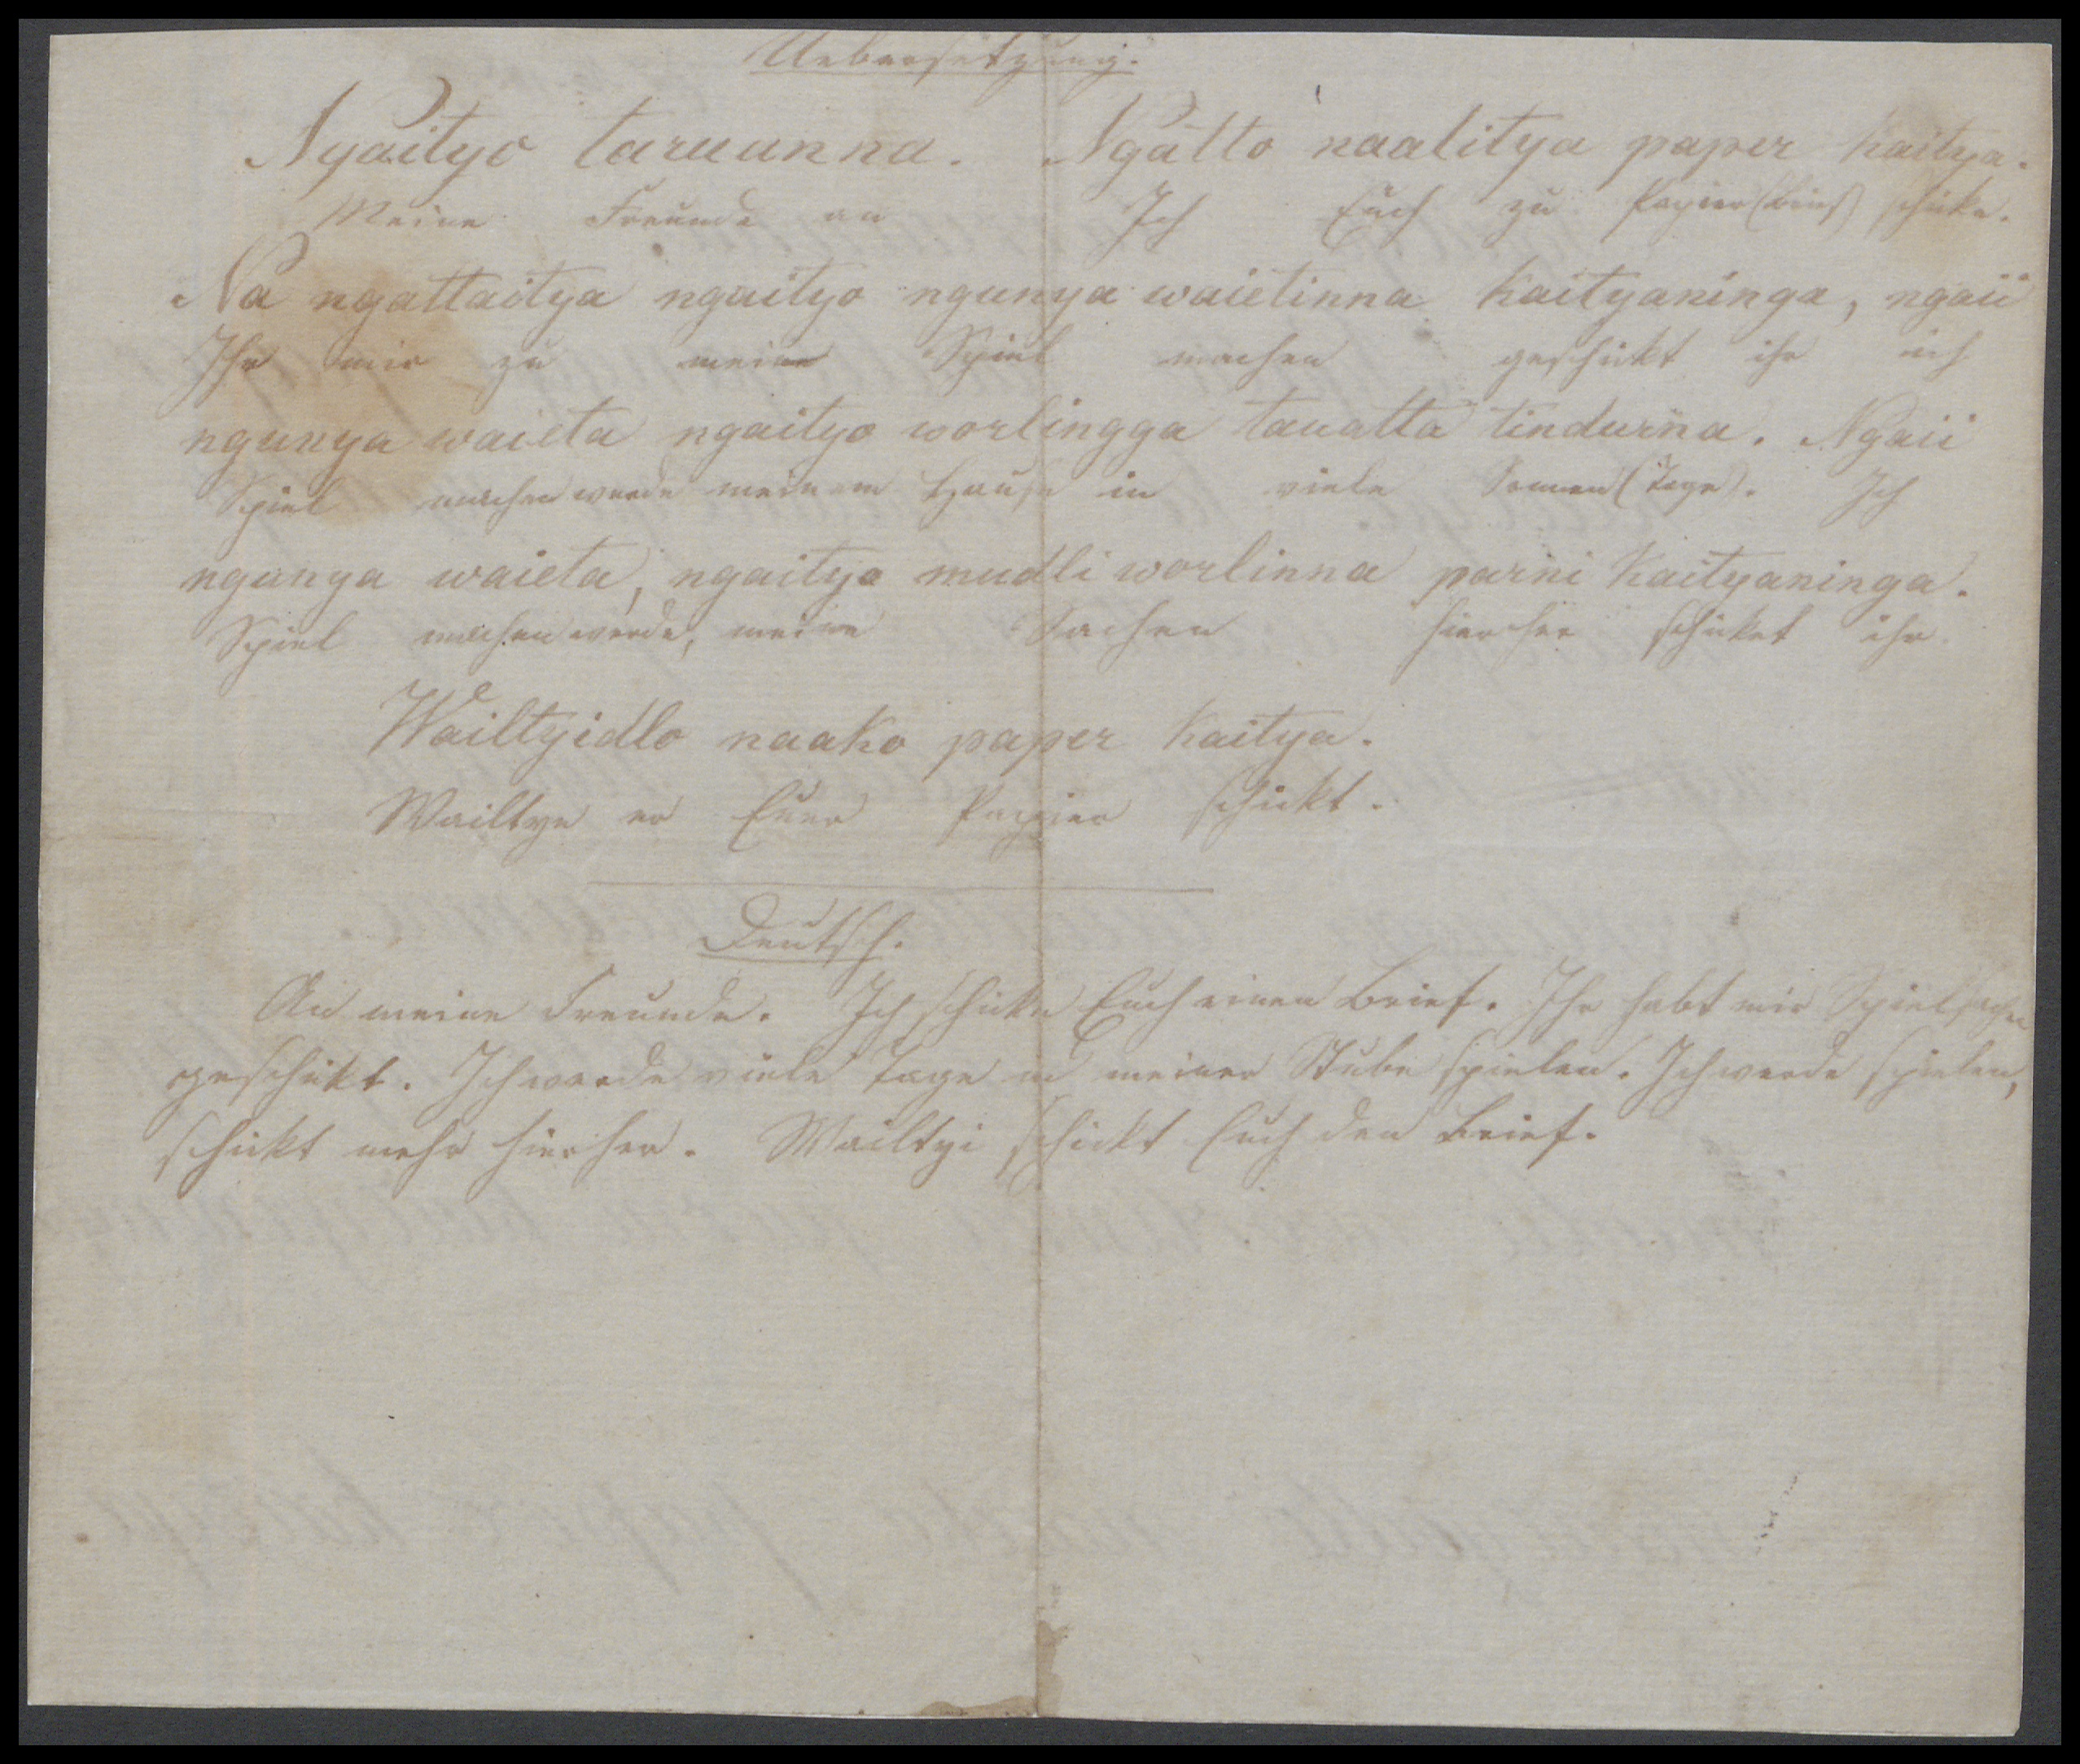 Uebersetzung.
Ngaityo taruunna. Ngatto naalitya paper kaitya.
Meine Freunde an Ich Euch zu Papier (Brief) schicke.
Na ngattaitya ngaityo ngunya waietinna kaityaninga, ngaii
Ihr mir zu meine Spiel machen geschickt ihr ich
ngunya waieta ngaityo worlingga tauatta tindurna. Ngaii
Spiel machen werde meinem Hause in viele Sonnen (Tage). Ich
ngunya waieta, ngaityo mudli worlinna parni kaityaninga.
Spiel machen werde, meine Sachen hierher schicket ihr
Wailtyidlo naako paper kaitya.
Wailtye er Euer Papier schickt.
Deutsch.
An meine Freunde. Ich schicke Euch einen Brief. Ihr habt mir Spielsachen
geschickt. Ich werde viele Tage in meiner Stube spielen. Ich werde spielen,
schickt mehr hierher. Wailtyi schickt Euch den Brief.